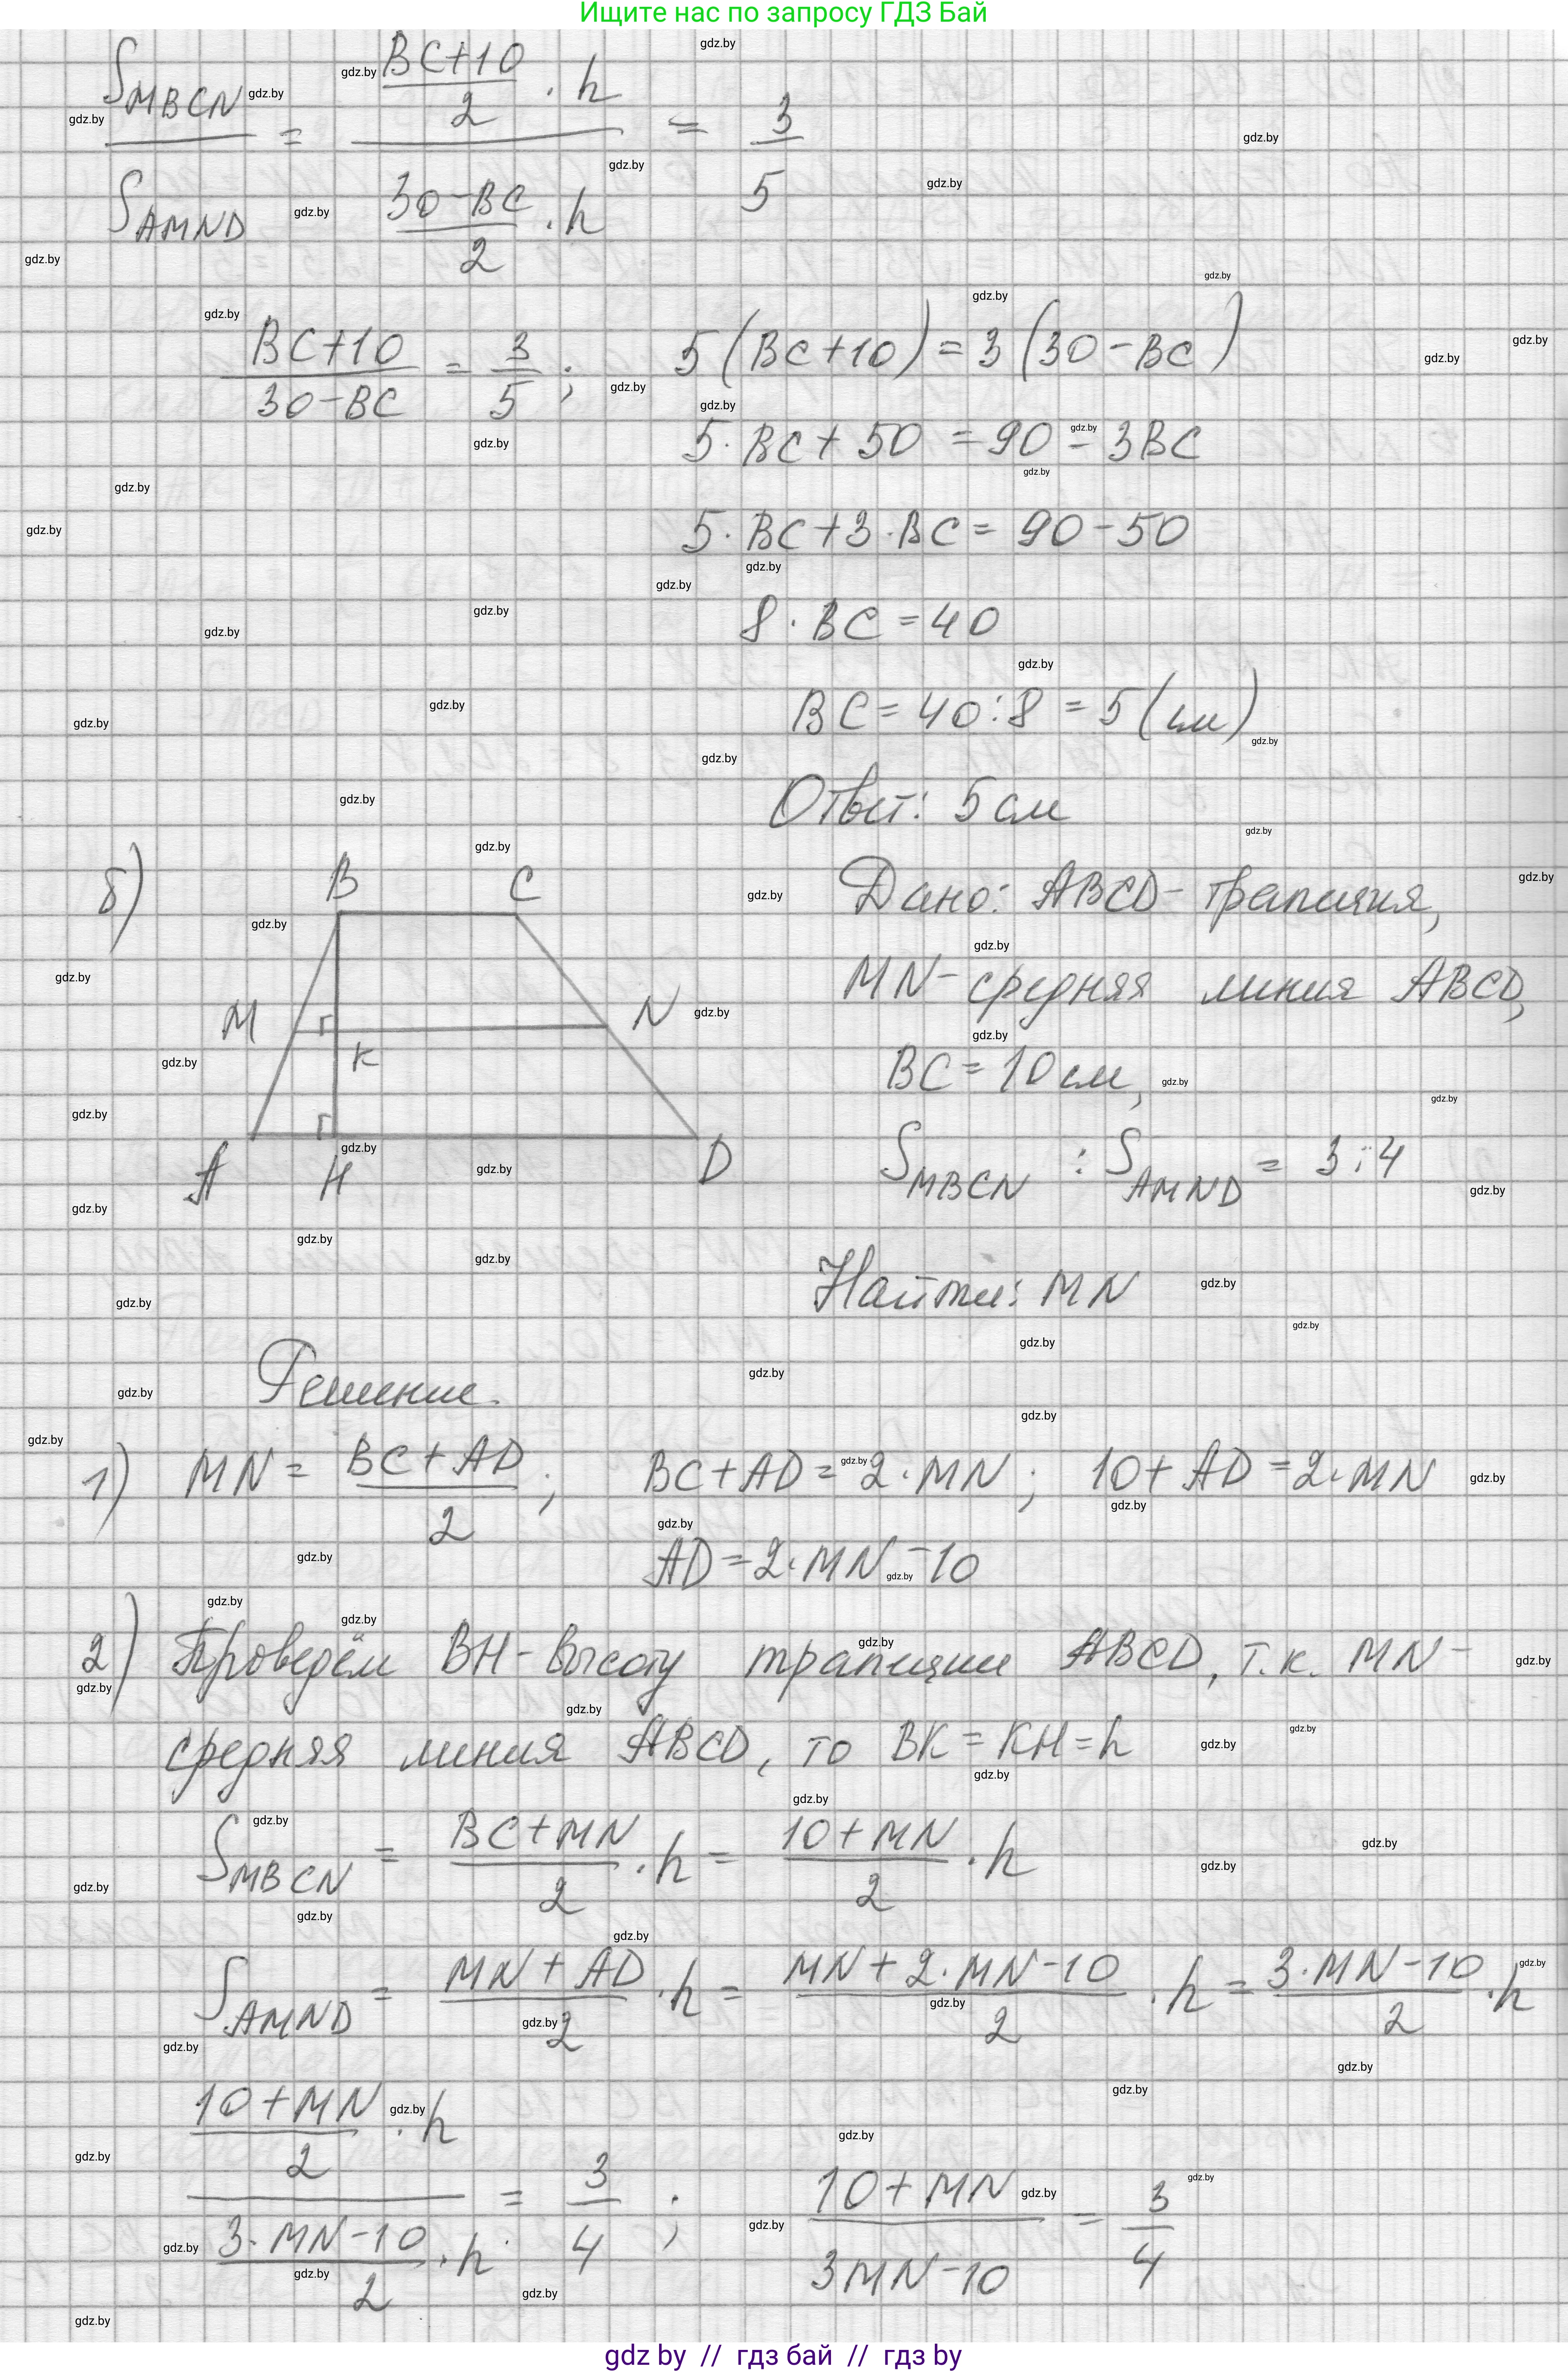 Ищите нас по запросу ГДЗ Бай
S_MBCN / S_AMND = ((BC+10)/2 · h) / ((30-BC)/2 · h) = 3/5
(BC+10)/(30-BC) = 3/5 ; 5(BC+10) = 3(30-BC)
5·BC + 50 = 90 - 3BC
5·BC + 3·BC = 90 - 50
8·BC = 40
BC = 40:8 = 5 (см)
Ответ: 5 см
б) B C
Дано: ABCD - трапеция,
MN - средняя линия ABCD,
M N
K
BC = 10 см,
S_MBCN : S_AMND = 3:4
A H D
Найти: MN
Решение.
1) MN = (BC + AD)/2 ; BC + AD = 2·MN ; 10 + AD = 2·MN
AD = 2·MN - 10
2) Проведём BH - высоту трапеции ABCD, т.к. MN -
средняя линия ABCD, то BK = KH = h
S_MBCN = (BC + MN)/2 · h = (10 + MN)/2 · h
S_AMND = (MN + AD)/2 · h = (MN + 2·MN - 10)/2 · h = (3·MN - 10)/2 · h
((10 + MN)/2 · h) / ((3·MN - 10)/2 · h) = 3/4 ; (10 + MN)/(3MN - 10) = 3/4
gdz by // гдз бай // гдз by